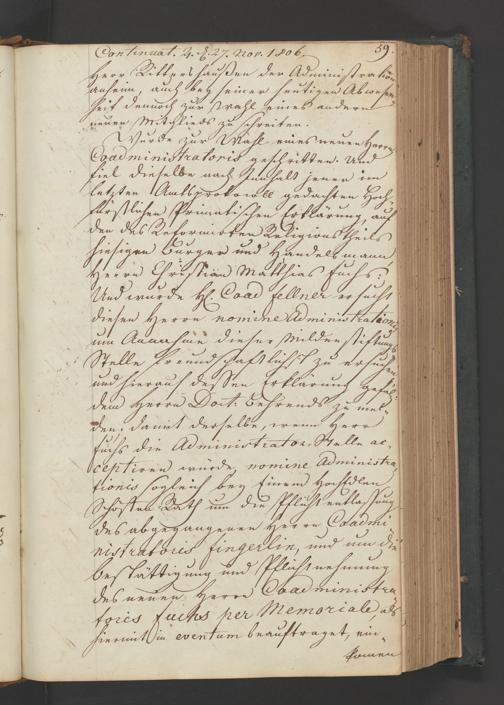 Continuat. 4. d. 27. Nov. 1806.
59.
Herr Rittershaußen der Administration
anheim, auch bey seiner heutigen Abwesen-
heit dennoch zur Wahl eines andern
neuen Mitglieds zu schreiten.
Wurde zur Wahl eines neuen Herrn
Coadministratoris geschritten. Und
fiel dieselbe nach Innhalt jener im
letzten Amtsprotocoll gedachten Hoch-
fürstlichen Primatischen Erklärung, auf
den des Reformirten Religions Theils
hiesigen Burger und Handelsmann
Herrn Christian Matthias Fuchs.
Und wurde H. Coad Fellner ersucht
diesen Herrn nomine Administrationis
um Annahme dieser Milden Stiftungs
Stelle freundschaftlichst zu ersuchen
und hierauf dessen Erklärung
dem Herrn Doct. Behrends zu mel-
den, damit derselbe, wenn Herr
Fuchs die Administrator-Stelle ac-
ceptiren würde, nomine Administra-
tionis sogleich bey Einem Hochedlen
Schöffen Rath um die Pflichtentlassung
des abgegangenen Herrn Coadmi-
nistratoris Fingerlin, und um die
Bestättigung und Pflichtnehmung
des neuen Herrn Coadministra-
toris Fuchs per Memoriale als
hiermit in eventum beauftraget, ein-
komen